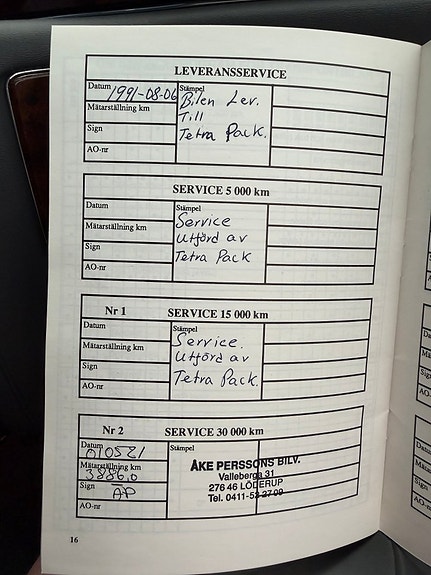 LEVERANSSERVICE
Datum 1991-08-06
Stämpel
Bilen Lev.
Till
Tetra Pack.
Mätarställning km
Sign
AO-nr
SERVICE 5 000 km
Datum
Stämpel
Service
utförd av
Tetra Pack
Mätarställning km
Sign
AO-nr
Nr 1 SERVICE 15 000 km
Datum
Stämpel
Service.
utförd av
Tetra Pack.
Mätarställning km
Sign
AO-nr
Nr 2 SERVICE 30 000 km
Datum
010521
Mätarställning km
3886,0
Sign
AP
AO-nr
Stämpel
ÅKE PERSSONS BILV.
Valleberga 31
276 46 LÖDERUP
Tel. 0411-52 27 09
16